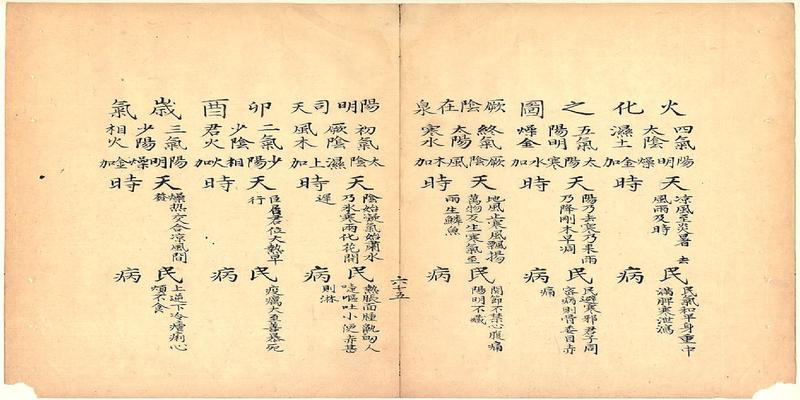 火化之圖
厥陰在泉
陽明司天
卯酉歲氣
四氣
太陰
濕土
陽明燥金加
天時
凉風至炎暑去
風雨及時
民病
民氣和平身重中
滿脾寒泄瀉
五氣
陽明
燥金
太陽寒水加
天時
陽乃去寒乃來雨
乃降剛木早凋
民病
民避寒邪君子周
密病則骨委目赤
痛
終氣
太陽
寒水
厥陰風木加
天時
地風止寒風飄揚
萬物反生寒氣至
雨生鱗魚
民病
関節不禁心腹痛
陽明不藏
六十五
初氣
厥陰
風木
太陰濕上加
天時
陰始凝氣始肅水
乃氷寒雨化花開
遲
民病
熱脹面腫鼽衂人
嚏嘔吐小便赤甚
則淋
二氣
少陰
君火
少陽相火加
天時
臣居君位大熱早
行
民病
疫癘大至善暴死
三氣
少陽
相火
陽明燥金加
天時
燥熱交合凉風間
發
民病
上逆下冷瘧痢心
煩不食